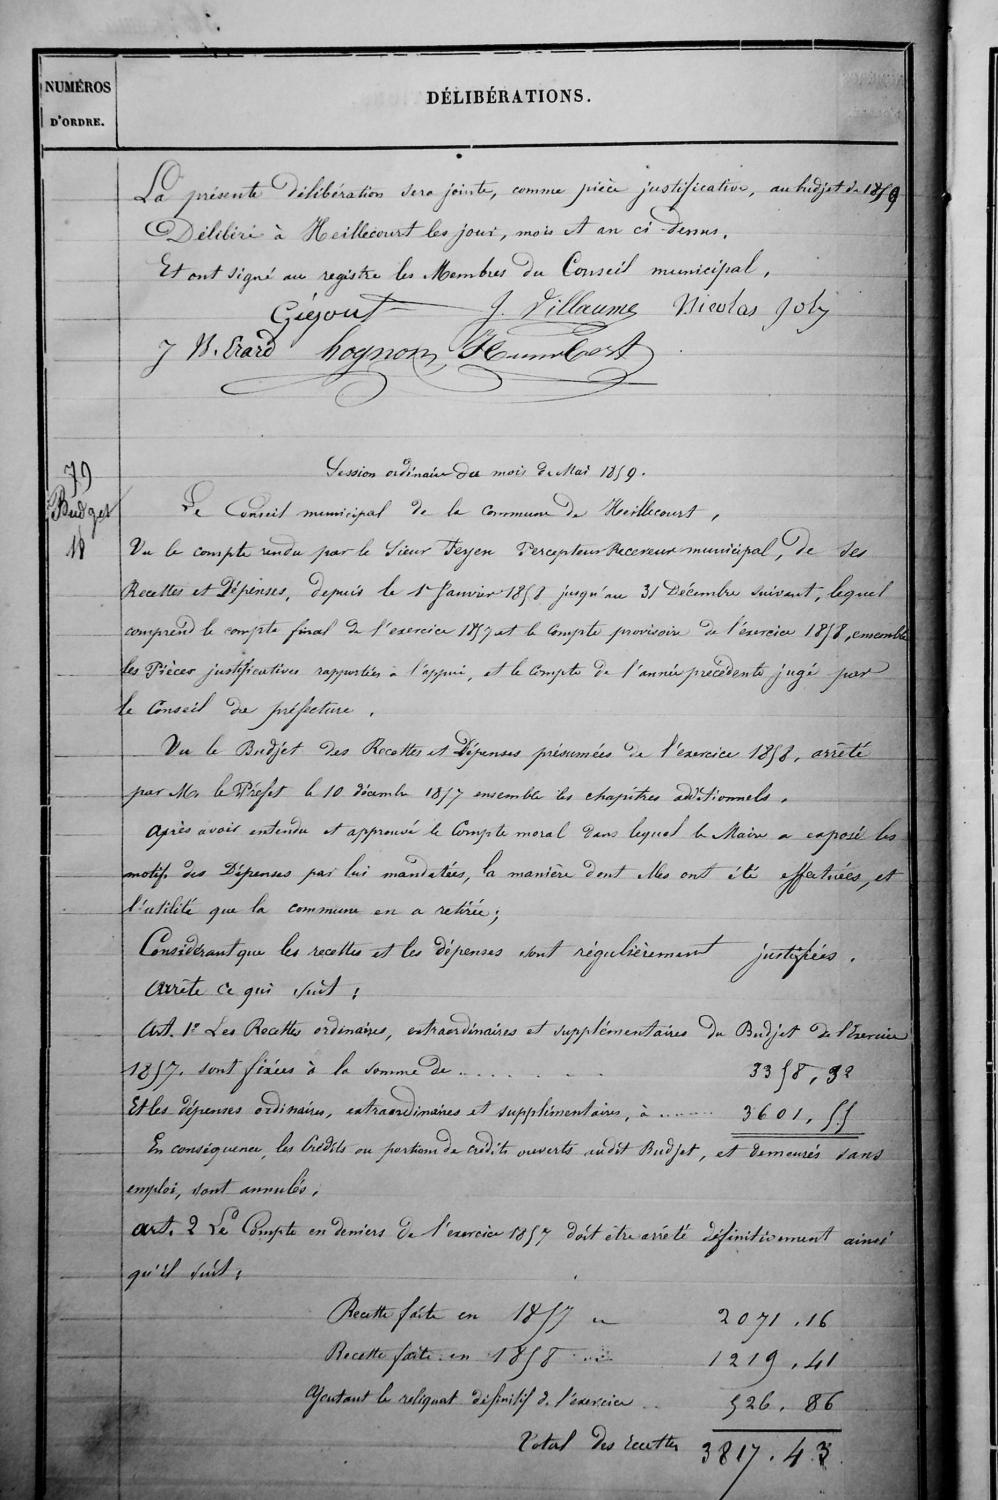 NUMÉROS
D'ORDRE.
DÉLIBÉRATIONS.
La présente délibération sera jointe, comme pièce justificative, au budjet de 1859
Délibéré à Heillecourt les jour, mois et an ci-dessus.
Et ont signé au registre les Membres du Conseil municipal,
J. Villaume Nicolas Joly
J N. Erard hognon Humbert
Session ordinaire du mois de Mai 1859.
79
Budget
18
Le Conseil municipal de la commune de Heillecourt,
Vu le compte rendu par le Sieur Feyen Percepteur Receveur municipal, de ses
Recettes et Dépenses, depuis le 1er Janvier 1858 jusqu'au 31 Décembre suivant, lequel
comprend le compte final de l'exercice 1857 et le Compte provisoire de l'exercice 1858, ensemble
les Pièces justificatives rapportées à l'appui, et le Compte de l'année précédente jugé par
le Conseil de préfecture.
Vu le Budjet des Recettes et Dépenses présumées de l'exercice 1858, arrêté
par Mr le Préfet le 10 décembre 1857 ensemble les chapitres additionnels.
Après avoir entendu et approuvé le Compte moral dans lequel le Maire a exposé les
motifs des Dépenses par lui mandatées, la manière dont elles ont été effectuées, et
l'utilité que la commune en a retirée;
Considérant que les recettes et les dépenses sont régulièrement justifiées.
Arrête ce qui suit:
Art. 1° Les Recettes ordinaires, extraordinaires et supplémentaires du Budjet de l'Exercice
1857. sont fixées à la somme de ....... 3358,92
Et les dépenses ordinaires, extraordinaires et supplémentaires, à ........ 3601,55
En conséquence, les Crédits ou portions de crédits ouverts audit Budjet, et demeurés sans
emploi, sont annulés.
art. 2 Le Compte en deniers de l'exercice 1857 doit être arrêté définitivement ainsi
qu'il suit:
Recette faite en 1857 2071.16
Recette faite en 1858 1219.41
Ajoutant le reliquat définitif de l'exercice .. 526.86
Total des recettes 3817.43